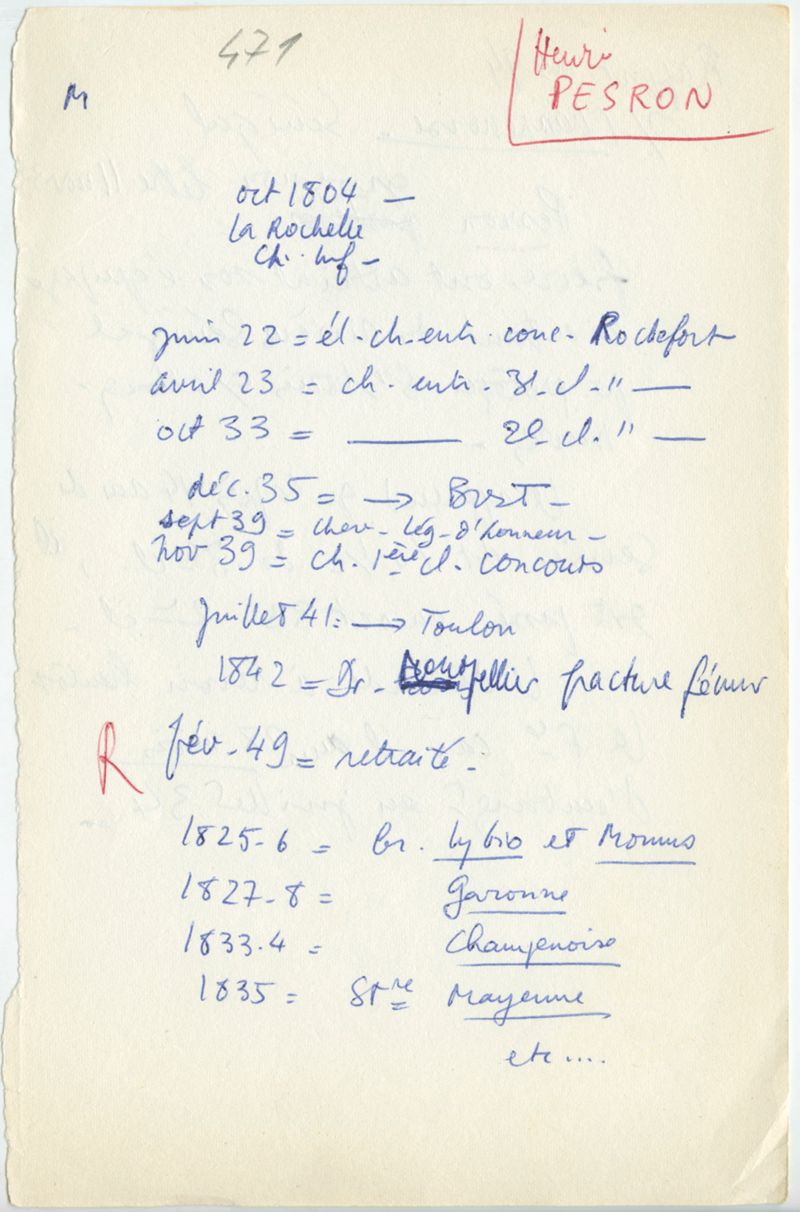 471
M
Henri
PESRON
oct 1804 —
La Rochelle
ch. inf -
juin 22 = él. ch. entr. conc. Rochefort
avril 23 = ch. entr. 3e cl. " —
oct 33 = ——— 2e cl. " —
déc. 35 = → Brest -
sept 39 = chev. lég. d'honneur -
nov 39 = ch. 1ère cl. concours
juillet 41 = → Toulon
1842 = Dr - Montpellier fracture fémur
R
fév. 49 = retraite -
1825-6 = br. Lybio et Momus
1827-8 = Garonne
1833.4 = Champenoise
1835 = Mayenne
etc....